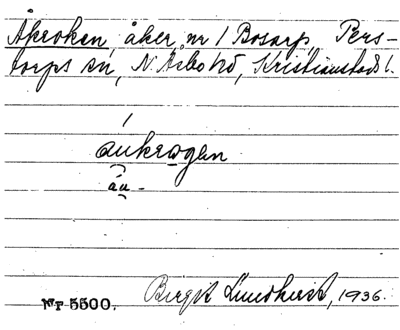 Åkroken, åker, nr 1 Bosarp, Pers-
torps sn, N. Åsbo hd, Kristianstads l.
áukrogen
áu-
Nr 5500. Birgit Lundkvist, 1936.